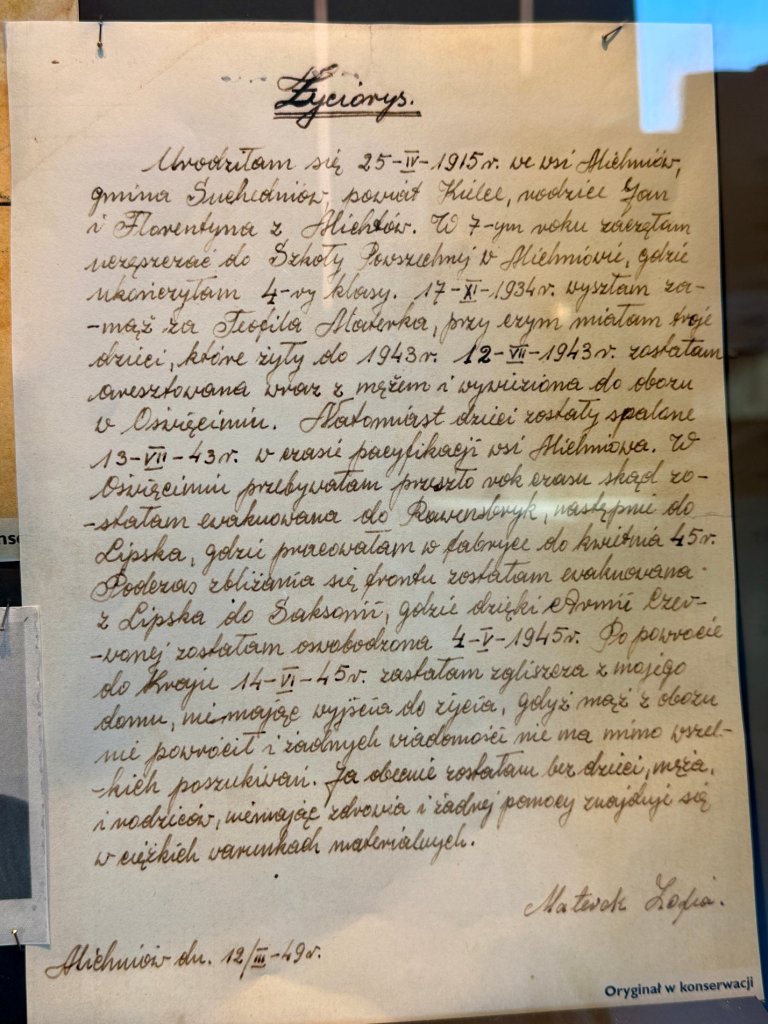 Życiorys.
Urodziłam się 25-IV-1915r. we wsi Michniów,
gmina Suchedniów, powiat Kielce, rodzice Jan
i Florentyna z Michtów. W 7-ym roku zaczęłam
uczęszczać do Szkoły Powszechnej w Michniowie, gdzie
ukończyłam 4-ry klasy. 17-XI-1934r. wyszłam za-
-mąż za Teofila Materka, przy czym miałam troje
dzieci, które żyły do 1943r. 12-VII-1943r. zostałam
aresztowana wraz z mężem i wywieziona do obozu
w Oświęcimiu. Natomiast dzieci zostały spalone
13-VII-43r. w czasie pacyfikacji wsi Michniowa. W
Oświęcimiu przebywałam przeszło rok czasu skąd zo-
-stałam ewakuowana do Rawensbryk, następnie do
Lipska, gdzie pracowałam w fabryce do kwietnia 45r.
Podczas zbliżania się frontu zostałam ewakuowana
z Lipska do Saksonii, gdzie dzięki Armii Czer-
-wonej zostałam oswobodzona 4-V-1945r. Po powrocie
do Kraju 14-VI-45r. zastałam zgliszcza z mojego
domu, nie mając wyjścia do życia, gdyż mąż z obozu
nie powrócił i żadnych wiadomości nie ma mimo wszel-
-kich poszukiwań. Ja obecnie zostałam bez dzieci, męża,
i rodziców, niemając zdrowia i żadnej pomocy znajduję się
w ciężkich warunkach materialnych.
Materek Zofia.
Michniów dn. 12/III-49r.
Oryginał w konserwacji